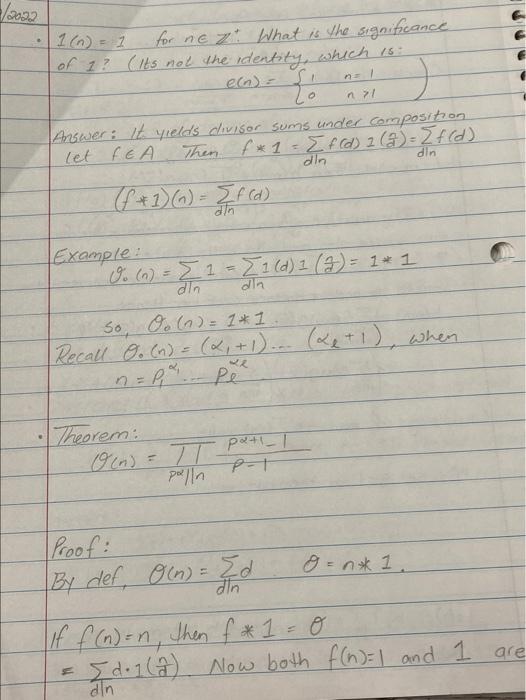 /2022
• 1(n) = 1 for n ∈ Z⁺ What is the significance
of 1? (Its not the identity, which is:
e(n) = { 1 n = 1
0 n > 1 )
Answer: It yields divisor sums under composition
let f ∈ A. Then f * 1 = Σ_{d|n} f(d) 1(n/d) = Σ_{d|n} f(d)
(f * 1)(n) = Σ_{d|n} f(d)
Example:
σ₀(n) = Σ_{d|n} 1 = Σ_{d|n} 1(d) 1(n/d) = 1 * 1
So, σ₀(n) = 1 * 1.
Recall σ₀(n) = (α₁+1) ... (α_ℓ+1), when
n = P₁^{α₁} ... P_ℓ^{α_ℓ}
• Theorem:
σ(n) = ∏_{p^α||n} (p^{α+1} - 1)/(p - 1)
Proof:
By def, σ(n) = Σ_{d|n} d σ = n * 1.
If f(n) = n, then f * 1 = σ
= Σ_{d|n} d · 1(n/d). Now both f(n)=1 and 1 are